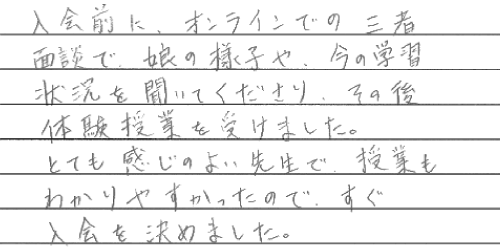 入会前に、オンラインでの三者
面談で、娘の様子や、今の学習
状況を聞いてくださり、その後
体験授業を受けました。
とても感じのよい先生で、授業も
わかりやすかったので、すぐ
入会を決めました。